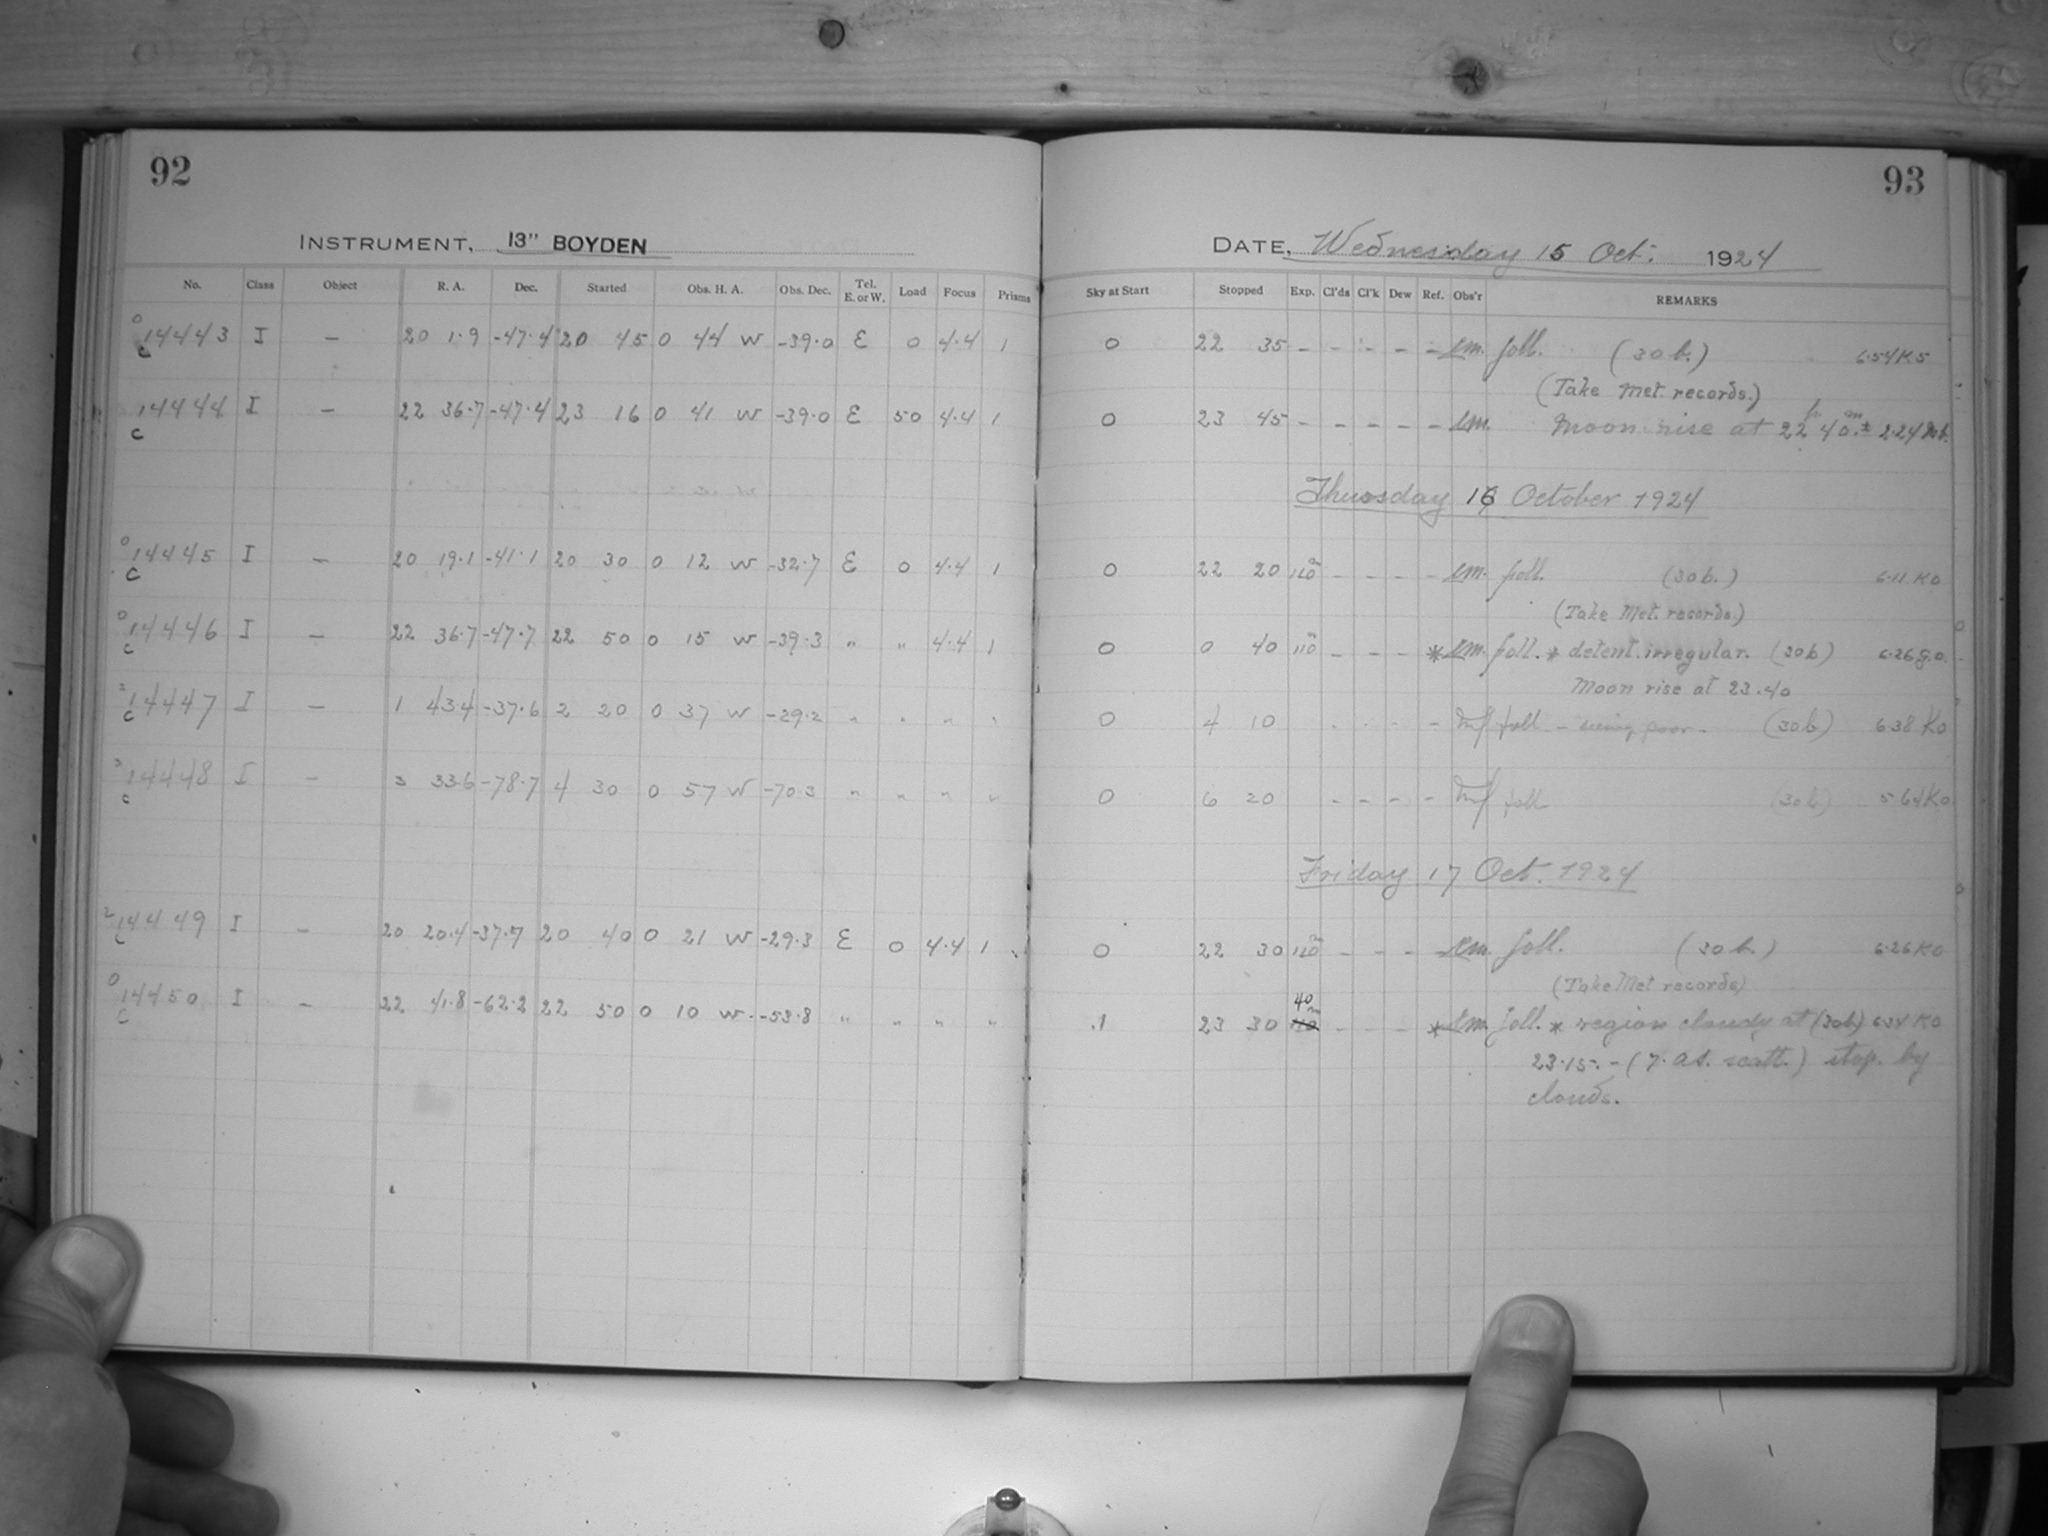 92
93
INSTRUMENT, 13" BOYDEN
DATE, Wednesday 15 Oct. 1924
No. Class Object R. A. Dec. Started Obs. H. A. Obs. Dec. Tel. E. or W. Load Focus Prisms Sky at Start Stopped Exp. Cl'ds Cl'k Dew Ref. Obs'r REMARKS
0 14443 c I - 20 1.9 -47.4 20 45 0 44 W -39.0 E 0 4.4 1 0 22 35 - - - - - foll. (30 b.)
(Take Met. records.)
14444 c I - 22 36.7 -47.4 23 16 0 41 W -39.0 E 50 4.4 1 0 23 45 - - - - - Moon rise at 22h 40m ±
Thursday 16 October 1924
0 14445 c I - 20 19.1 -41.1 20 30 0 12 W -32.7 E 0 4.4 1 0 22 20 110m - - - - foll. (30 b.) 6.11 K0
(Take Met. records)
0 14446 c I - 22 36.7 -47.7 22 50 0 15 W -39.3 " " 4.4 1 0 0 40 110m - - - * foll. * detent. irregular. (30b) 6.26 G.0.
Moon rise at 23.40
2 14447 c I - 1 43.4 -37.6 2 20 0 37 W -29.2 " " " " 0 4 10 - - - - foll - seeing poor. (30b) 6.38 K0
3 14448 c I - 3 33.6 -78.7 4 30 0 57 W -70.3 " " " " 0 6 20 - - - - foll (30b) 5.64 K0
Friday 17 Oct. 1924
2 14449 c I - 20 20.4 -37.7 20 40 0 21 W -29.3 E 0 4.4 1 0 22 30 110m - - - - foll. (30 b.) 6.26 K0
(Take Met records)
0 14450 c I - 22 41.8 -62.2 22 50 0 10 W. -53.8 " " " " .1 23 30 40m 110 - - - * foll. * region cloudy at (30b)
23.15. - (7. as. scatt.) stop. by
clouds.